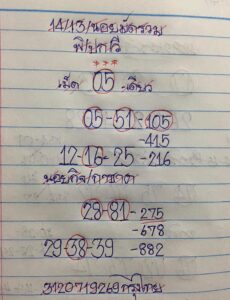 14/13/นอยมัดรวม
พิปกวี
***
เม็ด 05 -เดียว
05-51-105
-415
12-16-25-216
นอยกิจ/กาชาด
28-81-275
-678
29-38-39 -882
3120719269กรุงไทย